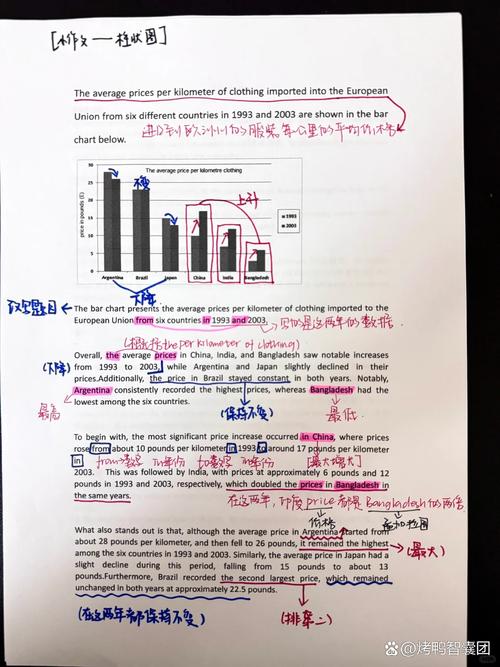 [小作文——柱状图]
The average prices per kilometer of clothing imported into the European
Union from six different countries in 1993 and 2003 are shown in the bar
chart below.
进口到欧洲的服装每公里的平均价格
The average price per kilometre clothing
price in pounds (£)
30
25
20
15
10
5
0
不变
上升
1993
2003
Argentina
Brazil
Japan
China
India
Bangladesh
下降
改写题目
The bar chart presents the average prices per kilometer of clothing imported to the
European Union from six countries in 1993 and 2003.
(the per kilometer of clothing)
Overall, the average prices in China, India, and Bangladesh saw notable increases
(下降)
from 1993 to 2003, while Argentina and Japan slightly declined in their
prices.Additionally, the price in Brazil stayed constant in both years. Notably,
Argentina consistently recorded the highest prices, whereas Bangladesh had the
lowest among the six countries.
最高
(保持不变)
最低
To begin with, the most significant price increase occurred in China, where prices
rose from about 10 pounds per kilometer in 1993 to around 17 pounds per kilometer
in
from+数字 in年份 to数字 in年份
[最大增大]
2003. This was followed by India, with prices at approximately 6 pounds and 12
pounds in 1993 and 2003, respectively, which doubled the prices in Bangladesh in
the same years.
在这两年,印度price都是Bangladesh的两倍
价格
孟加拉国
What also stands out is that, although the average price in Argentina started from
about 28 pounds per kilometer, and then fell to 26 pounds, it remained the highest
among the six countries in 1993 and 2003. Similarly, the average price in Japan had a
(最大)
slight decline during this period, falling from 15 pounds to about 13
pounds.Furthermore, Brazil recorded the second largest price, which remained
unchanged in both years at approximately 22.5 pounds.
(在这两年都保持不变)
(排第二)
@烤鸭智囊团